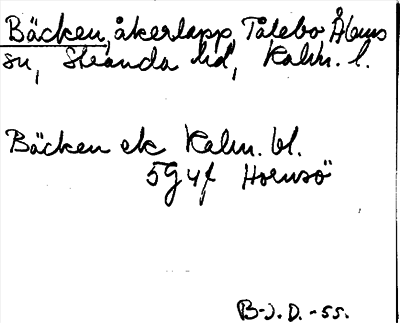 Bäcken, åkerlapp, Tålebo Ålems
sn, Stranda hd, Kalm. l.
Bäcken ek Kalm. bl.
5G4f Hornsö
B-J. D. -55.